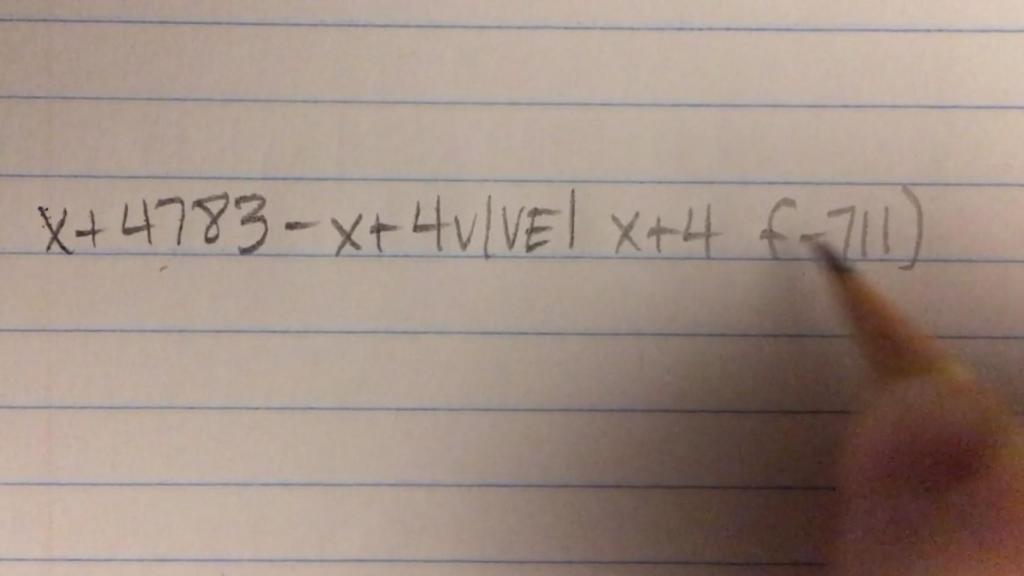 x+4783-x+4v|VE| x+4 f-711)